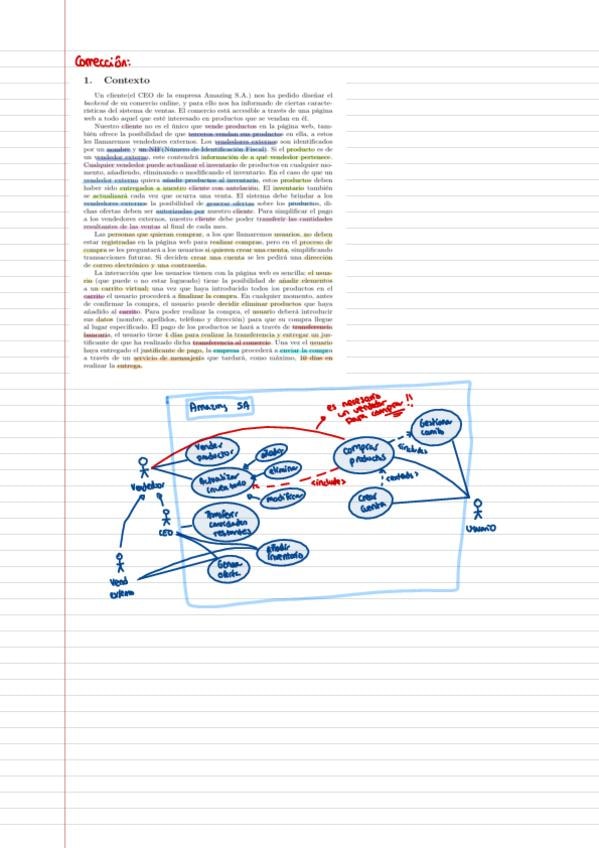 Corrección:
1. Contexto
Un cliente(el CEO de la empresa Amazing S.A.) nos ha pedido diseñar el
backend de su comercio online, y para ello nos ha informado de ciertas caracte-
rísticas del sistema de ventas. El comercio está accesible a través de una página
web a todo aquel que esté interesado en productos que se vendan en él.
Nuestro cliente no es el único que vende productos en la página web, tam-
bién ofrece la posibilidad de que terceros vendan sus productos en ella, a estos
les llamaremos vendedores externos. Los vendedores externos son identificados
por un nombre y un NIF(Número de Identificación Fiscal). Si el producto es de
un vendedor externo, este contendrá información de a qué vendedor pertenece.
Cualquier vendedor puede actualizar el inventario de productos en cualquier mo-
mento, añadiendo, eliminando o modificando el inventario. En el caso de que un
vendedor externo quiera añadir productos al inventario, estos productos deben
haber sido entregados a nuestro cliente con antelación. El inventario también
se actualizará cada vez que ocurra una venta. El sistema debe brindar a los
vendedores externos la posibilidad de generar ofertas sobre los productos, di-
chas ofertas deben ser autorizadas por nuestro cliente. Para simplificar el pago
a los vendedores externos, nuestro cliente debe poder transferir las cantidades
resultantes de las ventas al final de cada mes.
Las personas que quieran comprar, a los que llamaremos usuarios, no deben
estar registradas en la página web para realizar compras, pero en el proceso de
compra se les preguntará a los usuarios si quieren crear una cuenta, simplificando
transacciones futuras. Si deciden crear una cuenta se les pedirá una dirección
de correo electrónico y una contraseña.
La interacción que los usuarios tienen con la página web es sencilla; el usua-
rio (que puede o no estar logueado) tiene la posibilidad de añadir elementos
a un carrito virtual; una vez que haya introducido todos los productos en el
carrito el usuario procederá a finalizar la compra. En cualquier momento, antes
de confirmar la compra, el usuario puede decidir eliminar productos que haya
añadido al carrito. Para poder realizar la compra, el usuario deberá introducir
sus datos (nombre, apellidos, teléfono y dirección) para que su compra llegue
al lugar especificado. El pago de los productos se hará a través de transferencia
bancaria, el usuario tiene 4 días para realizar la transferencia y entregar un jus-
tificante de que ha realizado dicha transferencia al comercio. Una vez el usuario
haya entregado el justificante de pago, la empresa procederá a enviar la compra
a través de un servicio de mensajería que tardará, como máximo, 10 días en
realizar la entrega.
Amazing SA
es necesario
un vendedor
para comprar!!
Gestionar
carrito
Vender
productos
añadir
comprar
productos
<includes
eliminar
Actualizar
inventario
Vendedor
<includes
<extends
modificar
Crear
cuenta
Transferir
cantidades
restantes
CEO
Usuario
añadir
inventario
Vend
externo
Generar
oferta